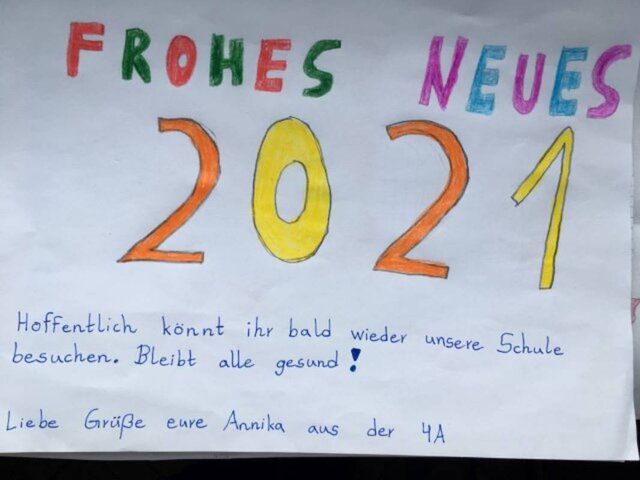 FROHES NEUES
2021
Hoffentlich könnt ihr bald wieder unsere Schule
besuchen. Bleibt alle gesund!
Liebe Grüße eure Annika aus der 4A